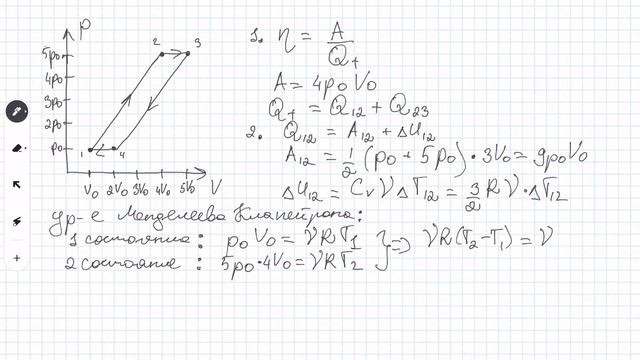 p
5p₀
4p₀
3p₀
2p₀
p₀
2
3
1
4
V₀ 2V₀ 3V₀ 4V₀ 5V₀ V
1. η = A / Q₊
A = 4p₀V₀
Q₊ = Q₁₂ + Q₂₃
2. Q₁₂ = A₁₂ + ΔU₁₂
A₁₂ = 1/2 (p₀ + 5p₀) · 3V₀ = 9p₀V₀
ΔU₁₂ = Cᵥ ν ΔT₁₂ = 3/2 R ν · ΔT₁₂
Ур-е Менделеева Клапейрона:
1 состояние: p₀V₀ = νRT₁ } => νR(T₂-T₁) = V
2 состояние: 5p₀·4V₀ = νRT₂